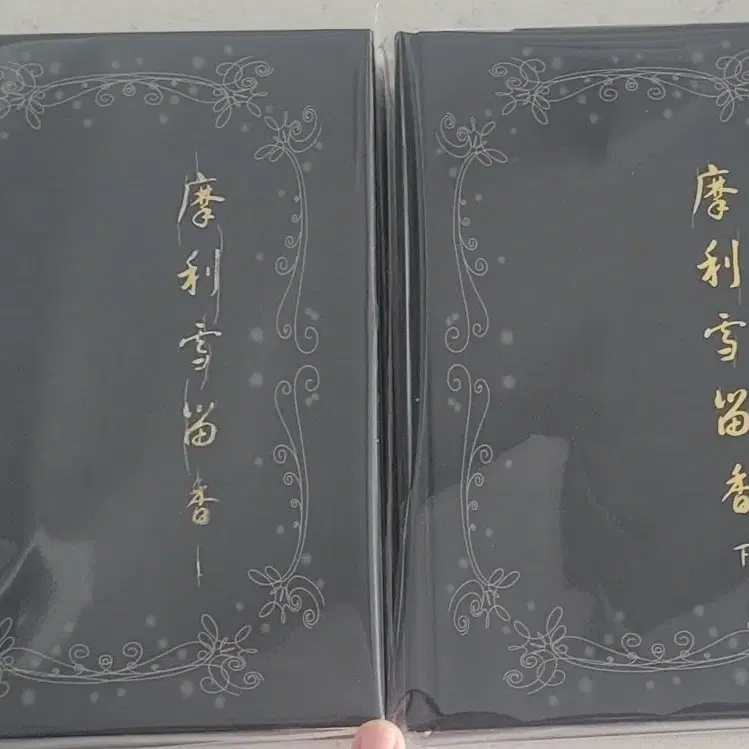 摩利雪留香上
摩利雪留香下